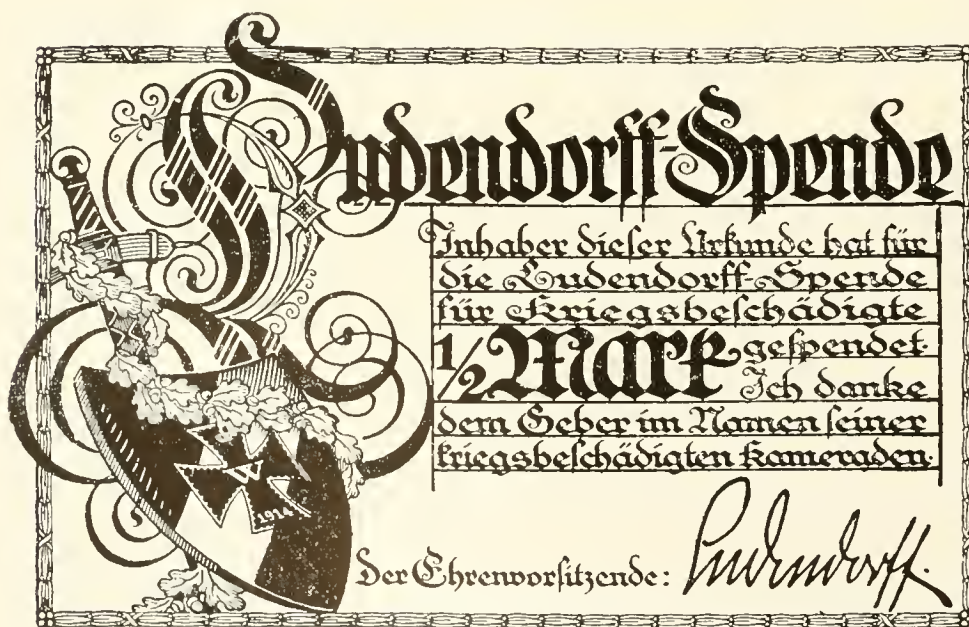 Ludendorff-Spende
Inhaber dieser Urkunde hat für
die Ludendorff-Spende
für Kriegsbeschädigte
1/2 Mark gespendet.
Ich danke
dem Geber im Namen seiner
kriegsbeschädigten Kameraden.
1914
Der Ehrenvorsitzende: Ludendorff.